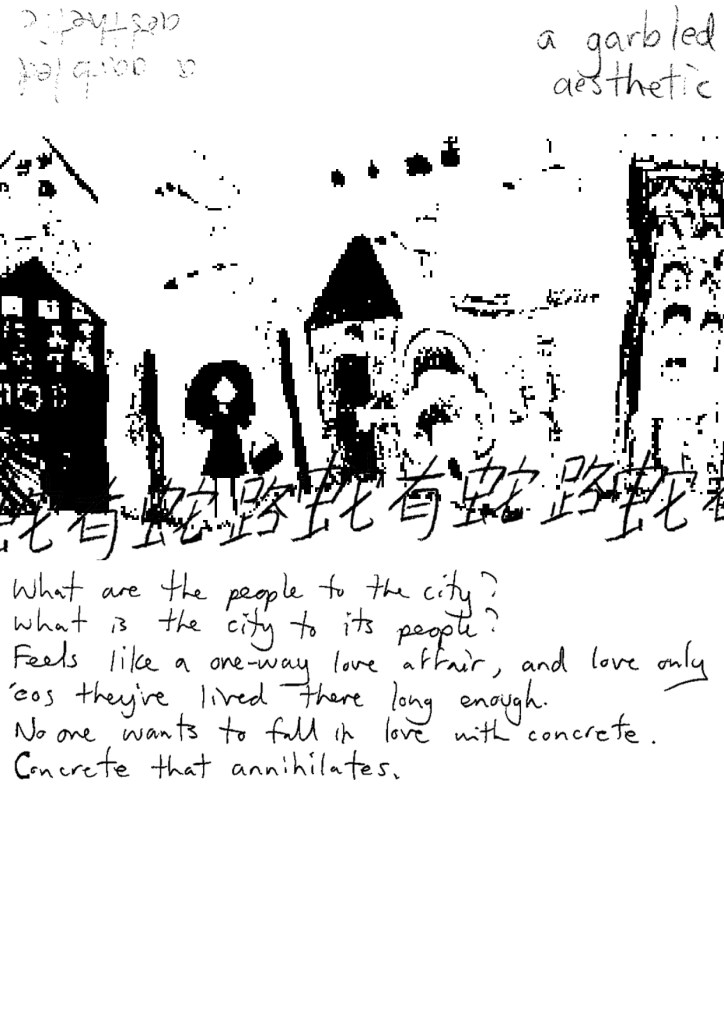 a garbled
aesthetic
a garbled
aesthetic
蛇有蛇路蛇有蛇路蛇有
What are the people to the city?
What is the city to its people?
Feels like a one-way love affair, and love only
'cos they've lived there long enough.
No one wants to fall in love with concrete.
Concrete that annihilates.